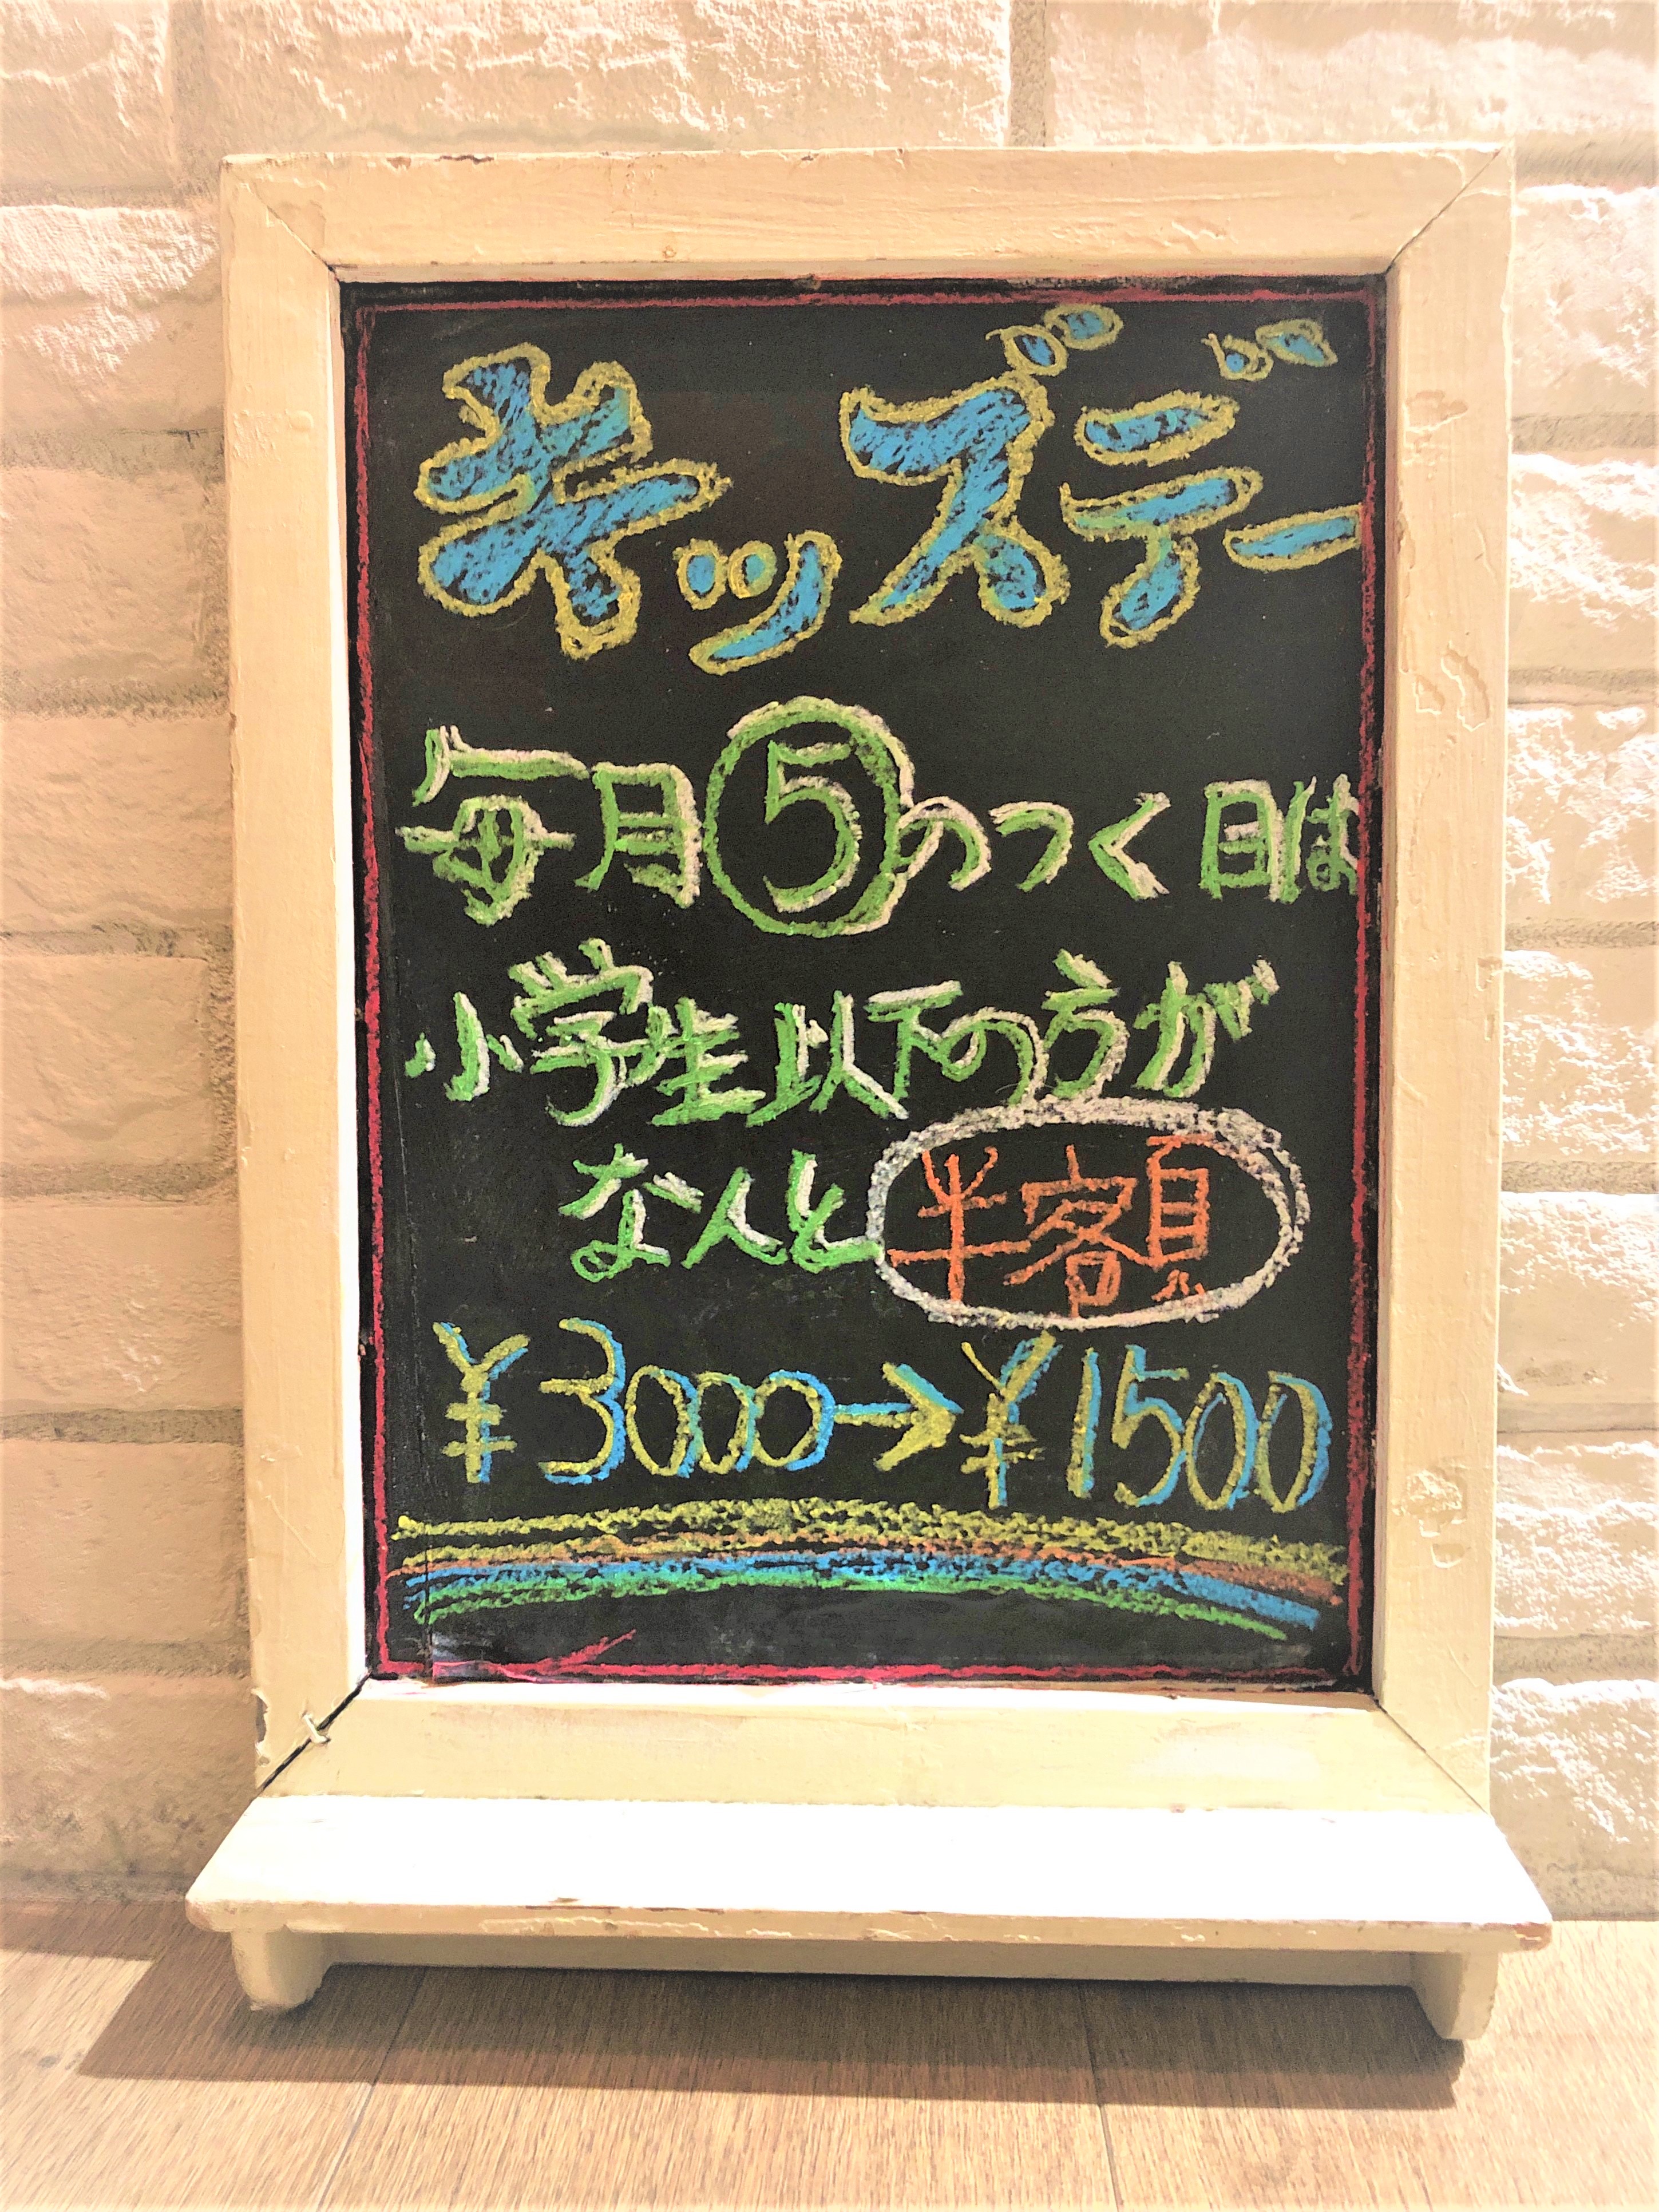 キッズデー
毎月⑤のつく日は
小学生以下の方が
なんと半額
¥3000→¥1500